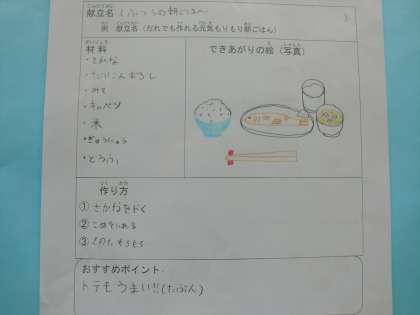 献立名 (ふつうの朝ごはん )
例 献立名(だれでも作れる元気もりもり朝ごはん)
材料
できあがりの絵(写真)
・さかな
・だいこんおろし
・みそ
・キャベツ
・米
・ぎゅうにゅう
・とうふ
作り方
①さかなをやく
②こめをいれる
③
おすすめポイント
トテモうまい!!(たぶん)